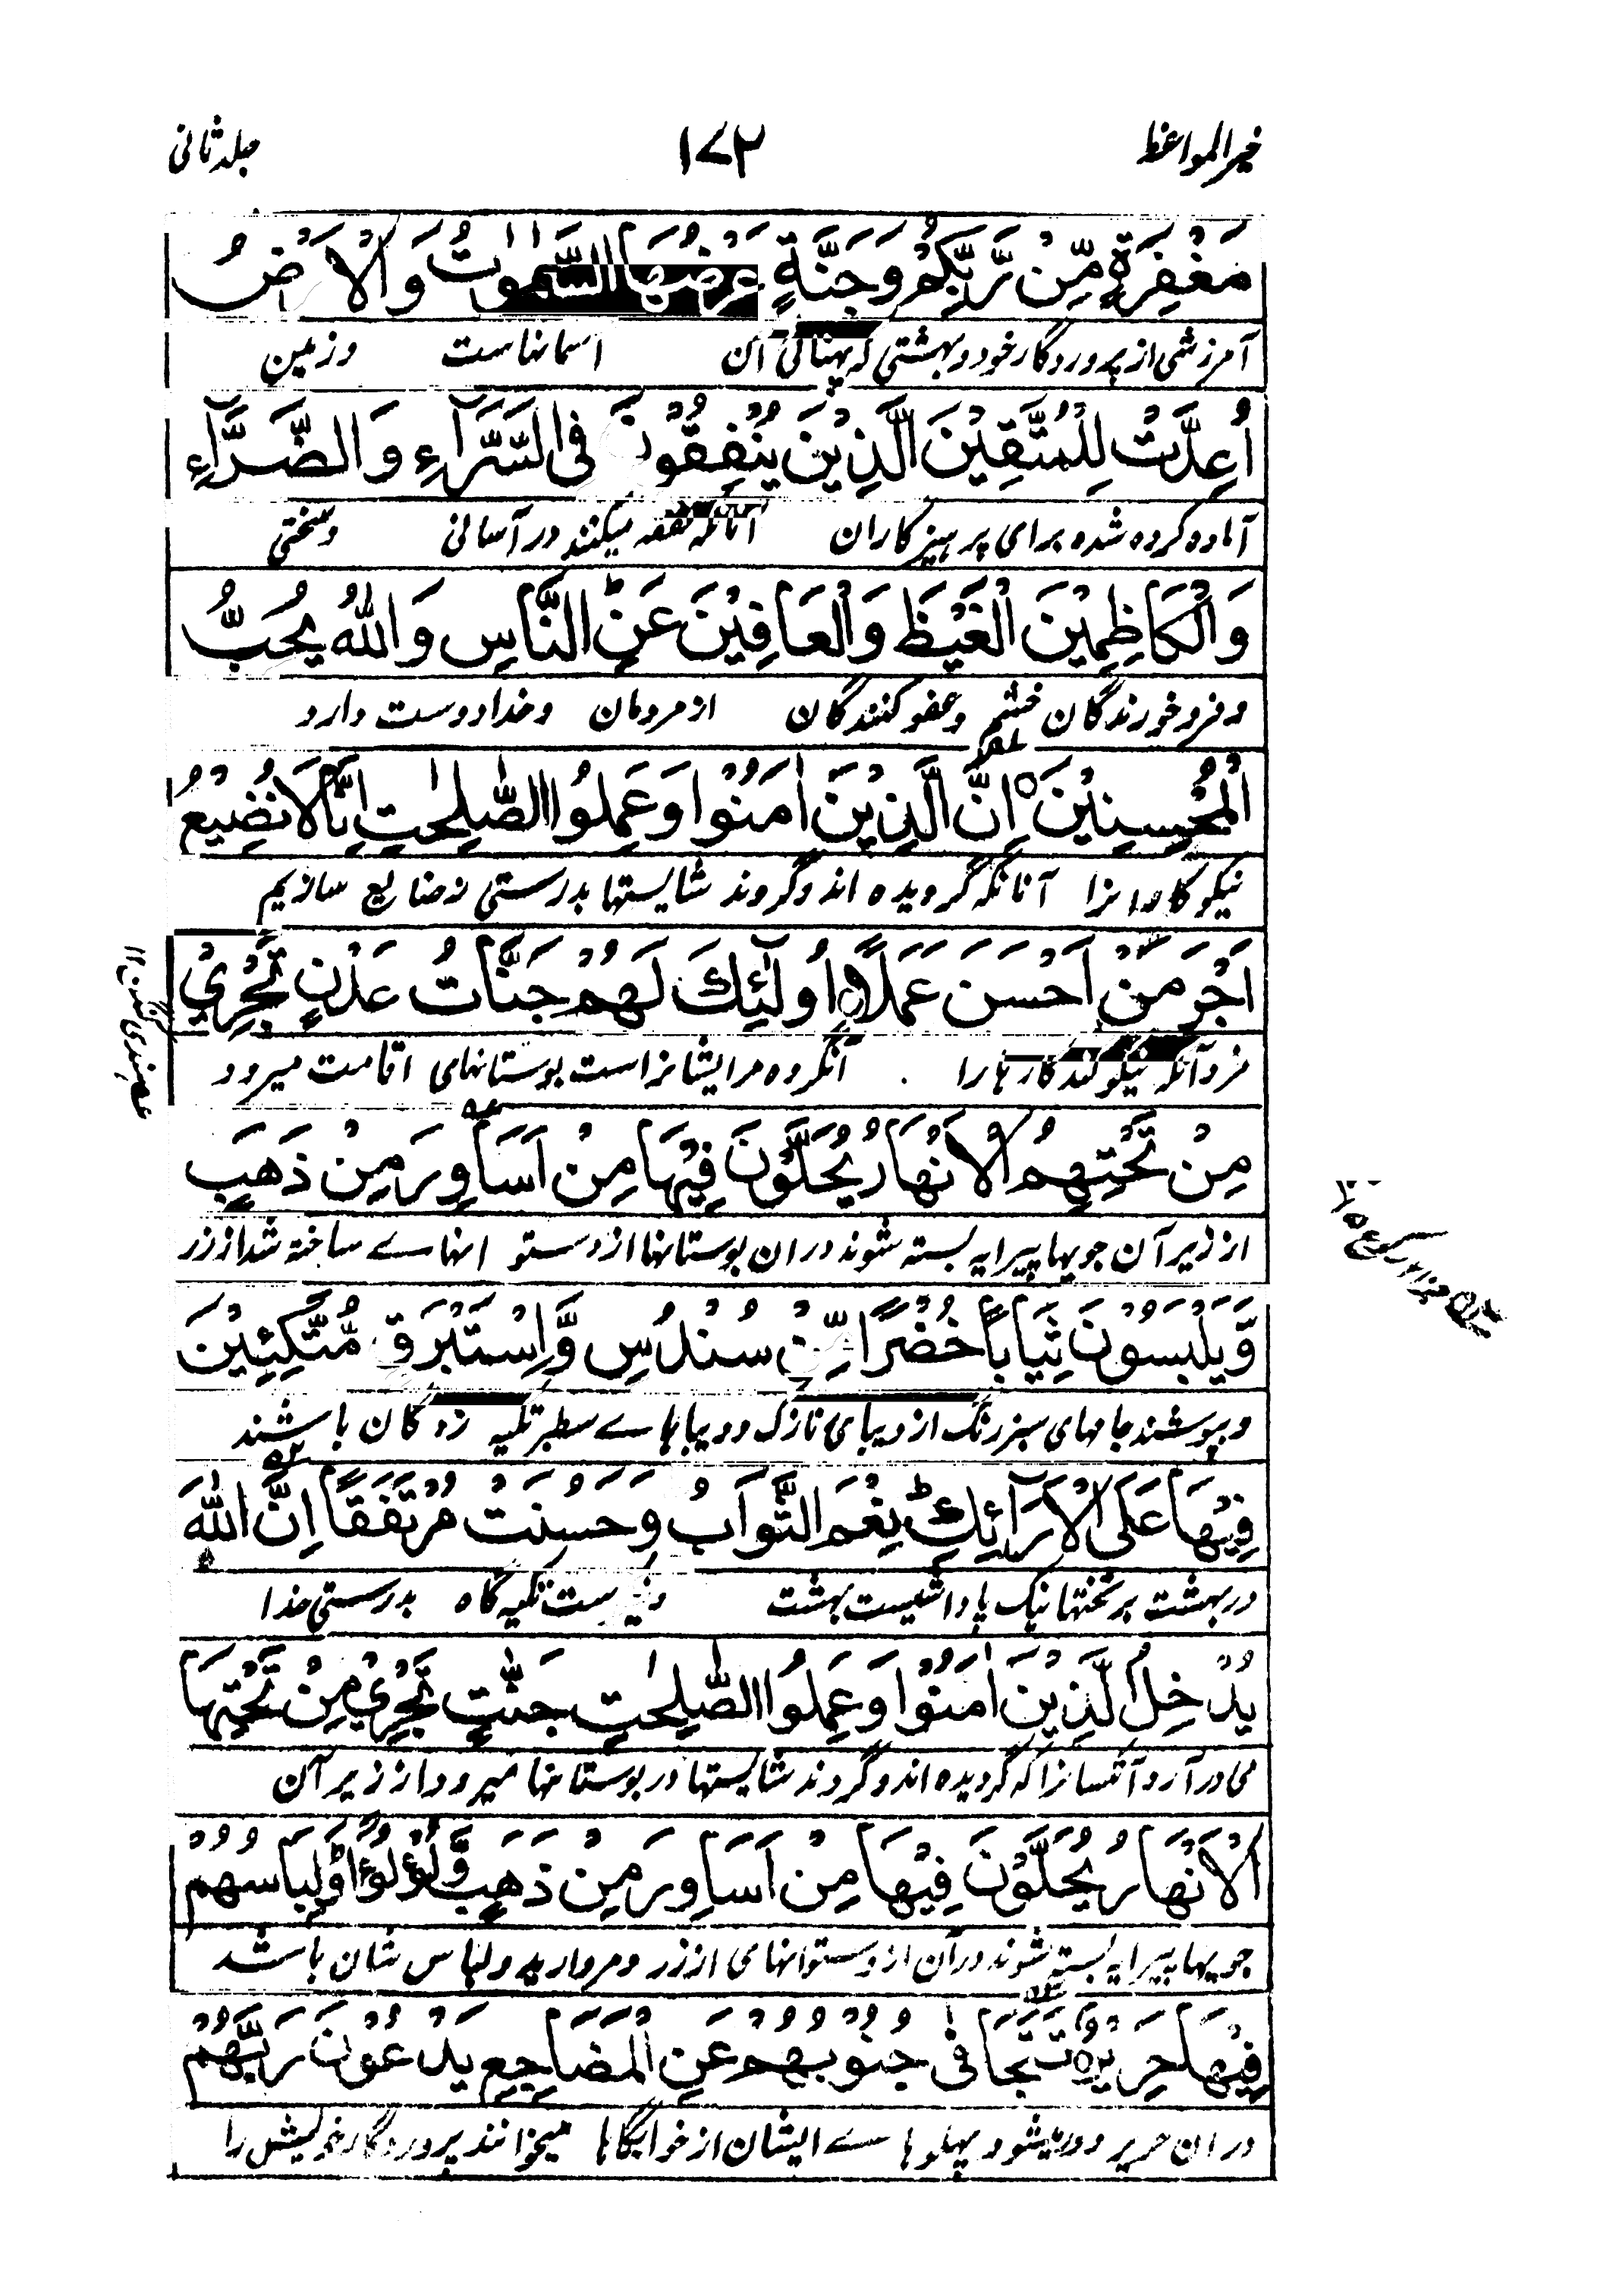 خیرالمواعظ
۱۷۲
جلد ثانی
مَغْفِرَةٍ مِّنْ رَّبِّكُمْ وَجَنَّةٍ عَرْضُهَا السَّمٰوٰتُ وَالْاَرْضُ
آمرزشی از پروردگار خود و بهشتی که پهنائی آن اسمانهاست و زمین
اُعِدَّتْ لِلْمُتَّقِيْنَ الَّذِيْنَ يُنْفِقُوْنَ فِى السَّرَّآءِ وَالضَّرَّآءِ
آماده کرده شده برای پرهیزکاران آنانکه نفقه میکنند در آسانی و سختی
وَالْكَاظِمِيْنَ الْغَيْظَ وَالْعَافِيْنَ عَنِ النَّاسِ وَاللّٰهُ يُحِبُّ
و فرو خورندگان خشم و عفو کنندگان از مردمان و خدا دوست دارد
الْمُحْسِنِيْنَ ۝ اِنَّ الَّذِيْنَ اٰمَنُوْا وَعَمِلُوا الصّٰلِحٰتِ اِنَّا لَا نُضِيْعُ
نیکو کارانرا آنانکه گرویده اند و کردند شایستها بدرستی نه ضایع سازیم
اَجْرَ مَنْ اَحْسَنَ عَمَلًا ۝ اُولٰٓئِكَ لَهُمْ جَنَّاتُ عَدْنٍ تَجْرِيْ
مزد آنکه نیکو کند کارها را آنگروه مر ایشانراست بوستانهای اقامت میرود
مِنْ تَحْتِهِمُ الْاَنْهَارُ يُحَلَّوْنَ فِيْهَا مِنْ اَسَاوِرَ مِنْ ذَهَبٍ
از زیر آن جویها پیرایه بسته شوند دران بوستانها از دستو انهاے ساخته شد از زر
وَّيَلْبَسُوْنَ ثِيَابًا خُضْرًا مِّنْ سُنْدُسٍ وَّاِسْتَبْرَقٍ مُّتَّكِئِيْنَ
و بپوشند جامهای سبز رنگ از دیبای نازک و دیباهاے سطبر تکیه زدگان باشند
فِيْهَا عَلَى الْاَرَآئِكِ ؕ نِعْمَ الثَّوَابُ وَحَسُنَتْ مُرْتَفَقًا اِنَّ اللّٰهَ
در بهشت بر تختها نیک پاداشیست بهشت تکیه گاه بدرستی خدا
يُدْخِلُ الَّذِيْنَ اٰمَنُوْا وَعَمِلُوا الصّٰلِحٰتِ جَنّٰتٍ تَجْرِيْ مِنْ تَحْتِهَا
می درآرد آنکسانرا که گرویده اند و کردند شایستها در بوستانها میرود از زیر آن
الْاَنْهَارُ يُحَلَّوْنَ فِيْهَا مِنْ اَسَاوِرَ مِنْ ذَهَبٍ وَّلُؤْلُؤًا وَّلِبَاسُهُمْ
جویها پیرایه بسته شوند در آن از دستوانهای از زر و مروارید و لباس شان باشد
فِيْهَا حَرِيْرٌ ۝ تَتَجَافٰى جُنُوْبُهُمْ عَنِ الْمَضَاجِعِ يَدْعُوْنَ رَبَّهُمْ
دران حریر دور میشود پهلوهاے ایشان از خوابگاها میخوانند پروردگار خویش را